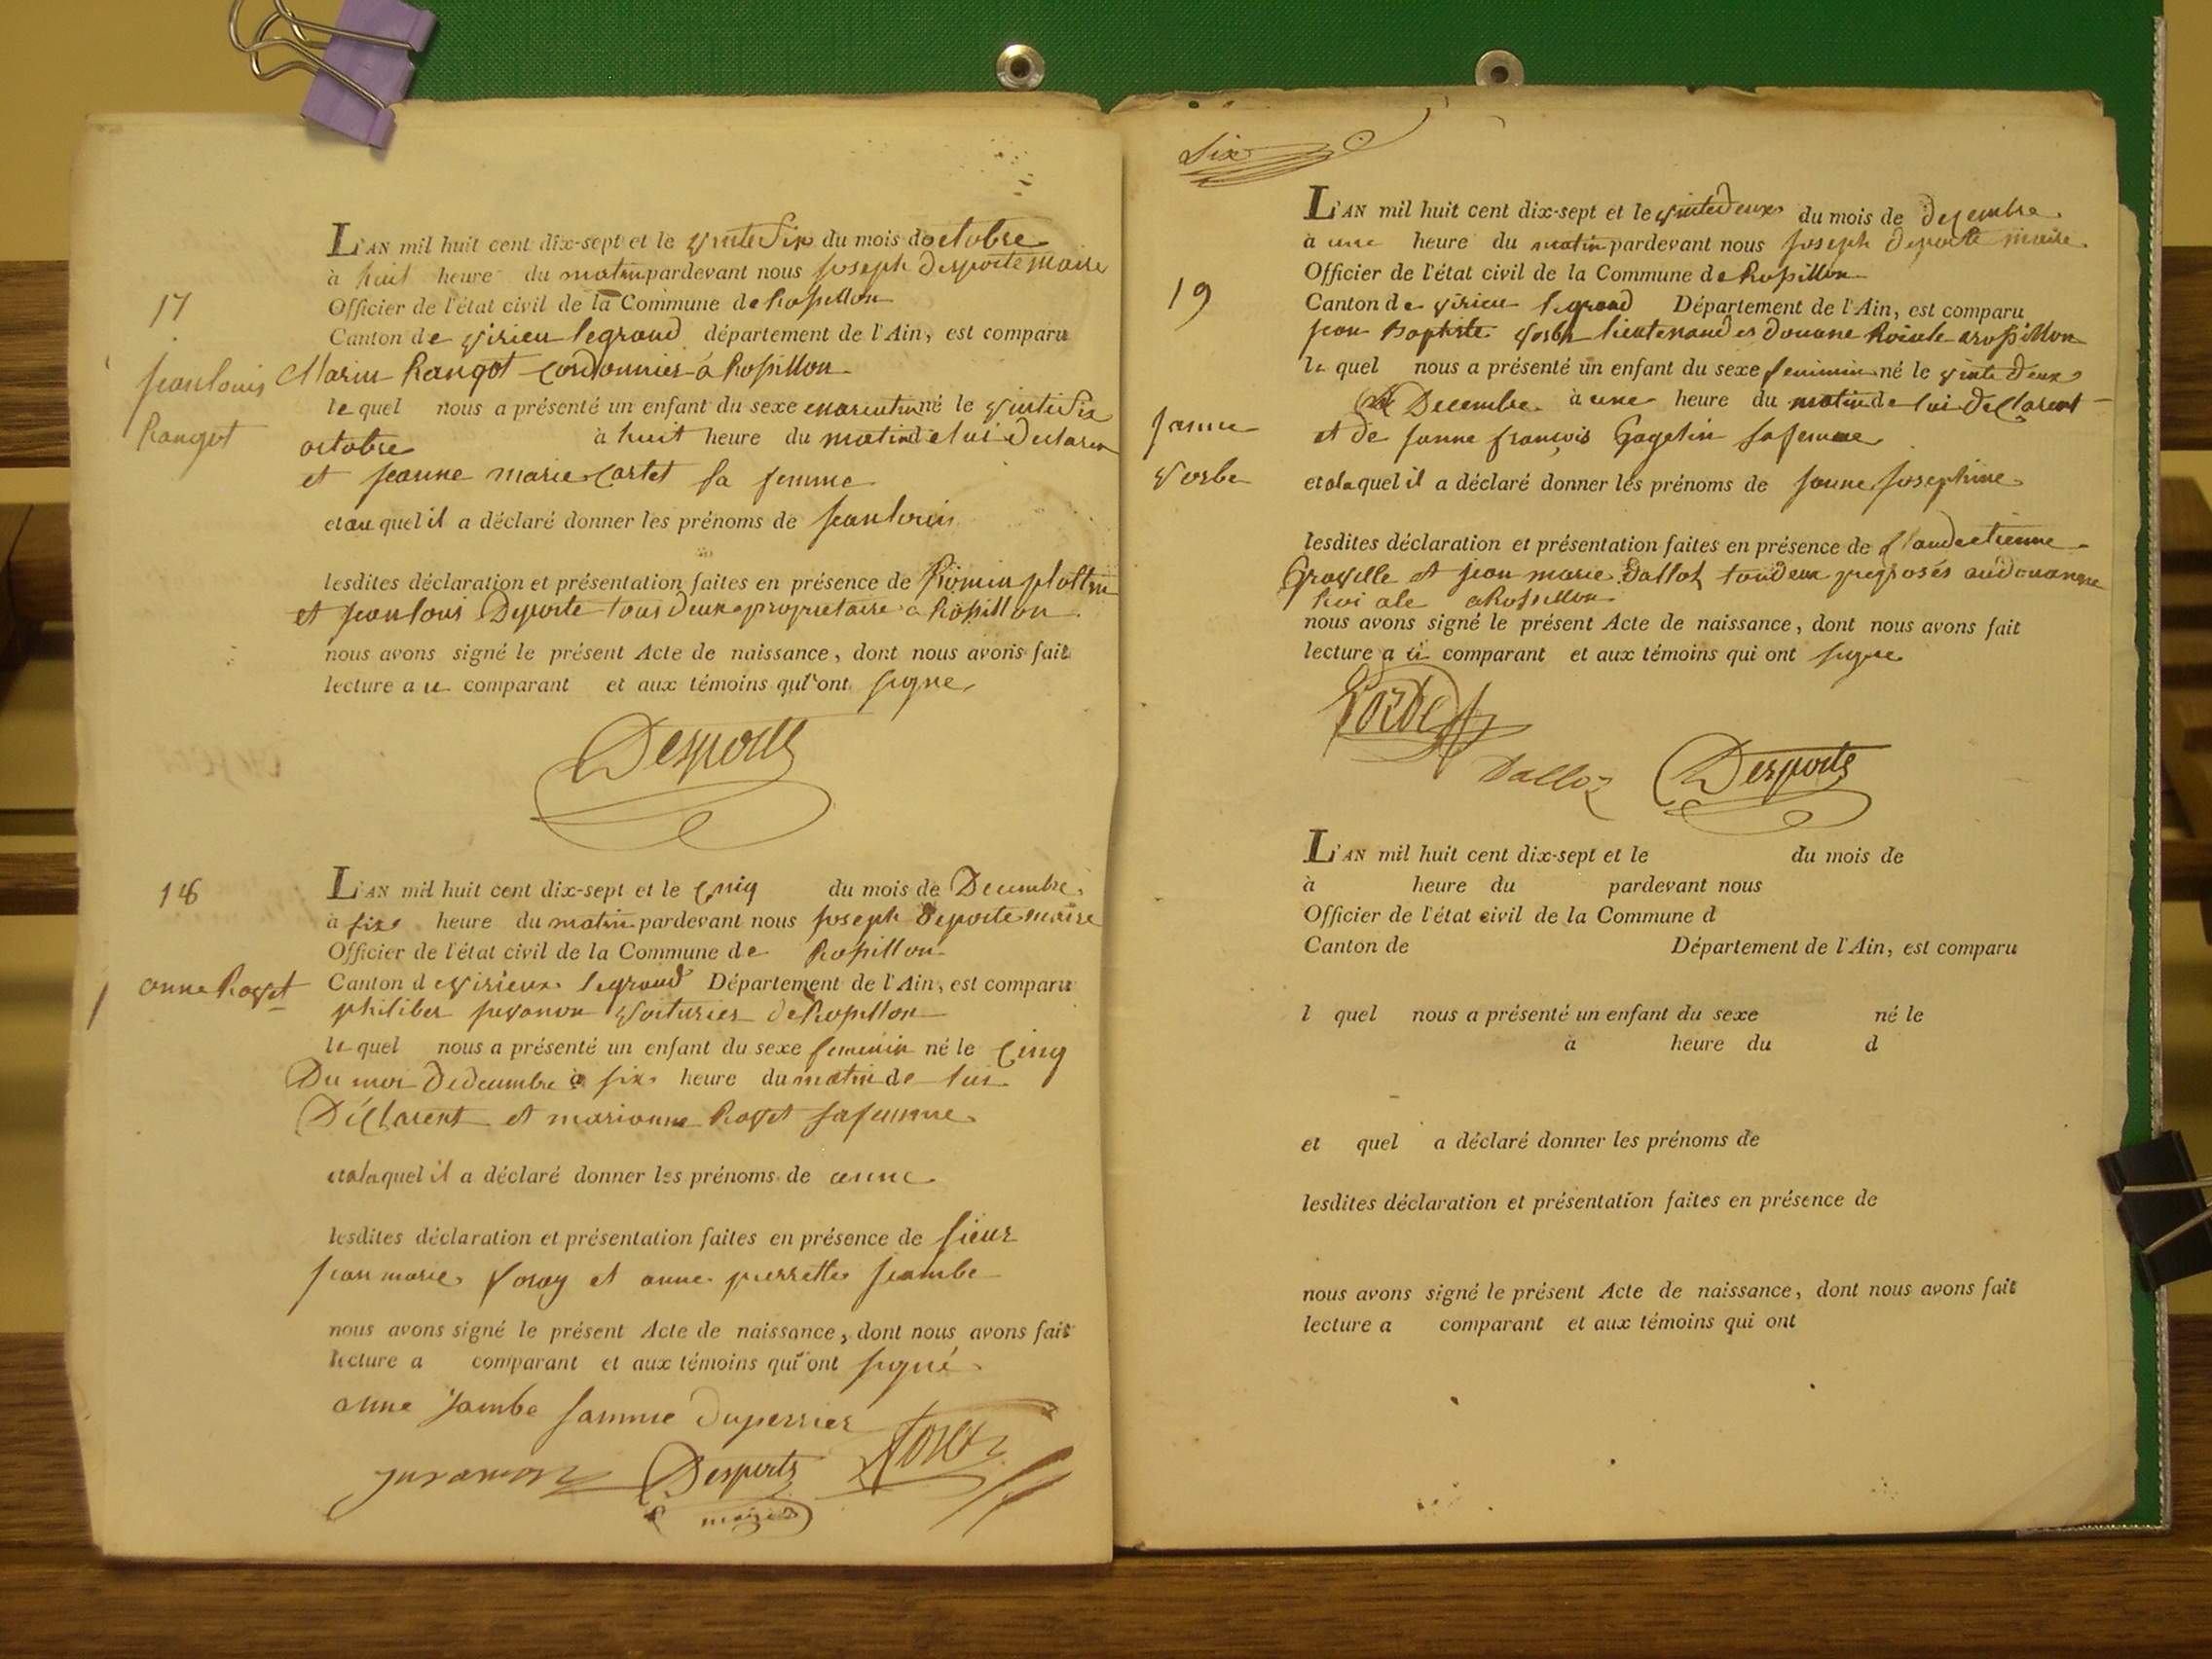 L'AN mil huit cent dix-sept et le vinte six du mois doctobre
à huit heure du matin pardevant nous joseph Desporte maire
17
Officier de l'état civil de la Commune de Rossillon
Canton de virieu legrand département de l'Ain, est comparu
jean louis
Rangot
Marin Rangot cordonnier a Rossillon
le quel nous a présenté un enfant du sexe masculin né le vinte six
octobre à huit heure du matin de lui declaren
et jeanne marie Cartet sa femme
et au quel il a déclaré donner les prénoms de jean louis
lesdites déclaration et présentation faites en présence de
et jean louis Deporte tous deux propriétaire a Rossillon
nous avons signé le présent Acte de naissance, dont nous avons fait
lecture a u comparant et aux témoins qui ont signe
Desporte
18
L'AN mil huit cent dix-sept et le cinq du mois de Decembre
à six heure du matin pardevant nous joseph Deporte maire
Officier de l'état civil de la Commune de Rossillon
anne Royet
Canton de virieux legrand Département de l'Ain, est comparu
philiber voiturier de Rossillon
le quel nous a présenté un enfant du sexe feminin né le cinq
Du moi de decembre à six heure du matin de lui
Déclarent et marianne Royet sa femme
et a la quel il a déclaré donner les prénoms de anne
lesdites déclaration et présentation faites en présence de sieur
jean marie et anne pierrette jambe
nous avons signé le présent Acte de naissance, dont nous avons fait
lecture a comparant et aux témoins qui ont signé
anne jambe famme duperrier
Desporte
maire
Six
L'AN mil huit cent dix-sept et le vinte deux du mois de decembre
à une heure du matin pardevant nous joseph deporte maire
Officier de l'état civil de la Commune de Rossillon
19
Canton de virieu legrand Département de l'Ain, est comparu
jean Baptiste vorbe lieutenand es douane Roiale a rossillon
le quel nous a présenté un enfant du sexe feminin né le vinte deux
Decembre à une heure du matin de lui declarent
janne
vorbe
et de janne françois Gagelin sa femme
et a la quel il a déclaré donner les prénoms de janne josephine
lesdites déclaration et présentation faites en présence de Claude etienne
Graville et jean marie Dalloz tou deux preposés au douanne
Roi ale a Rossillon
nous avons signé le présent Acte de naissance, dont nous avons fait
lecture a u comparant et aux témoins qui ont signe
Vorbe
Dalloz Desporte
L'AN mil huit cent dix-sept et le du mois de
à heure du pardevant nous
Officier de l'état civil de la Commune d
Canton de Département de l'Ain, est comparu
l quel nous a présenté un enfant du sexe né le
à heure du d
et quel a déclaré donner les prénoms de
lesdites déclaration et présentation faites en présence de
nous avons signé le présent Acte de naissance, dont nous avons fait
lecture a comparant et aux témoins qui ont